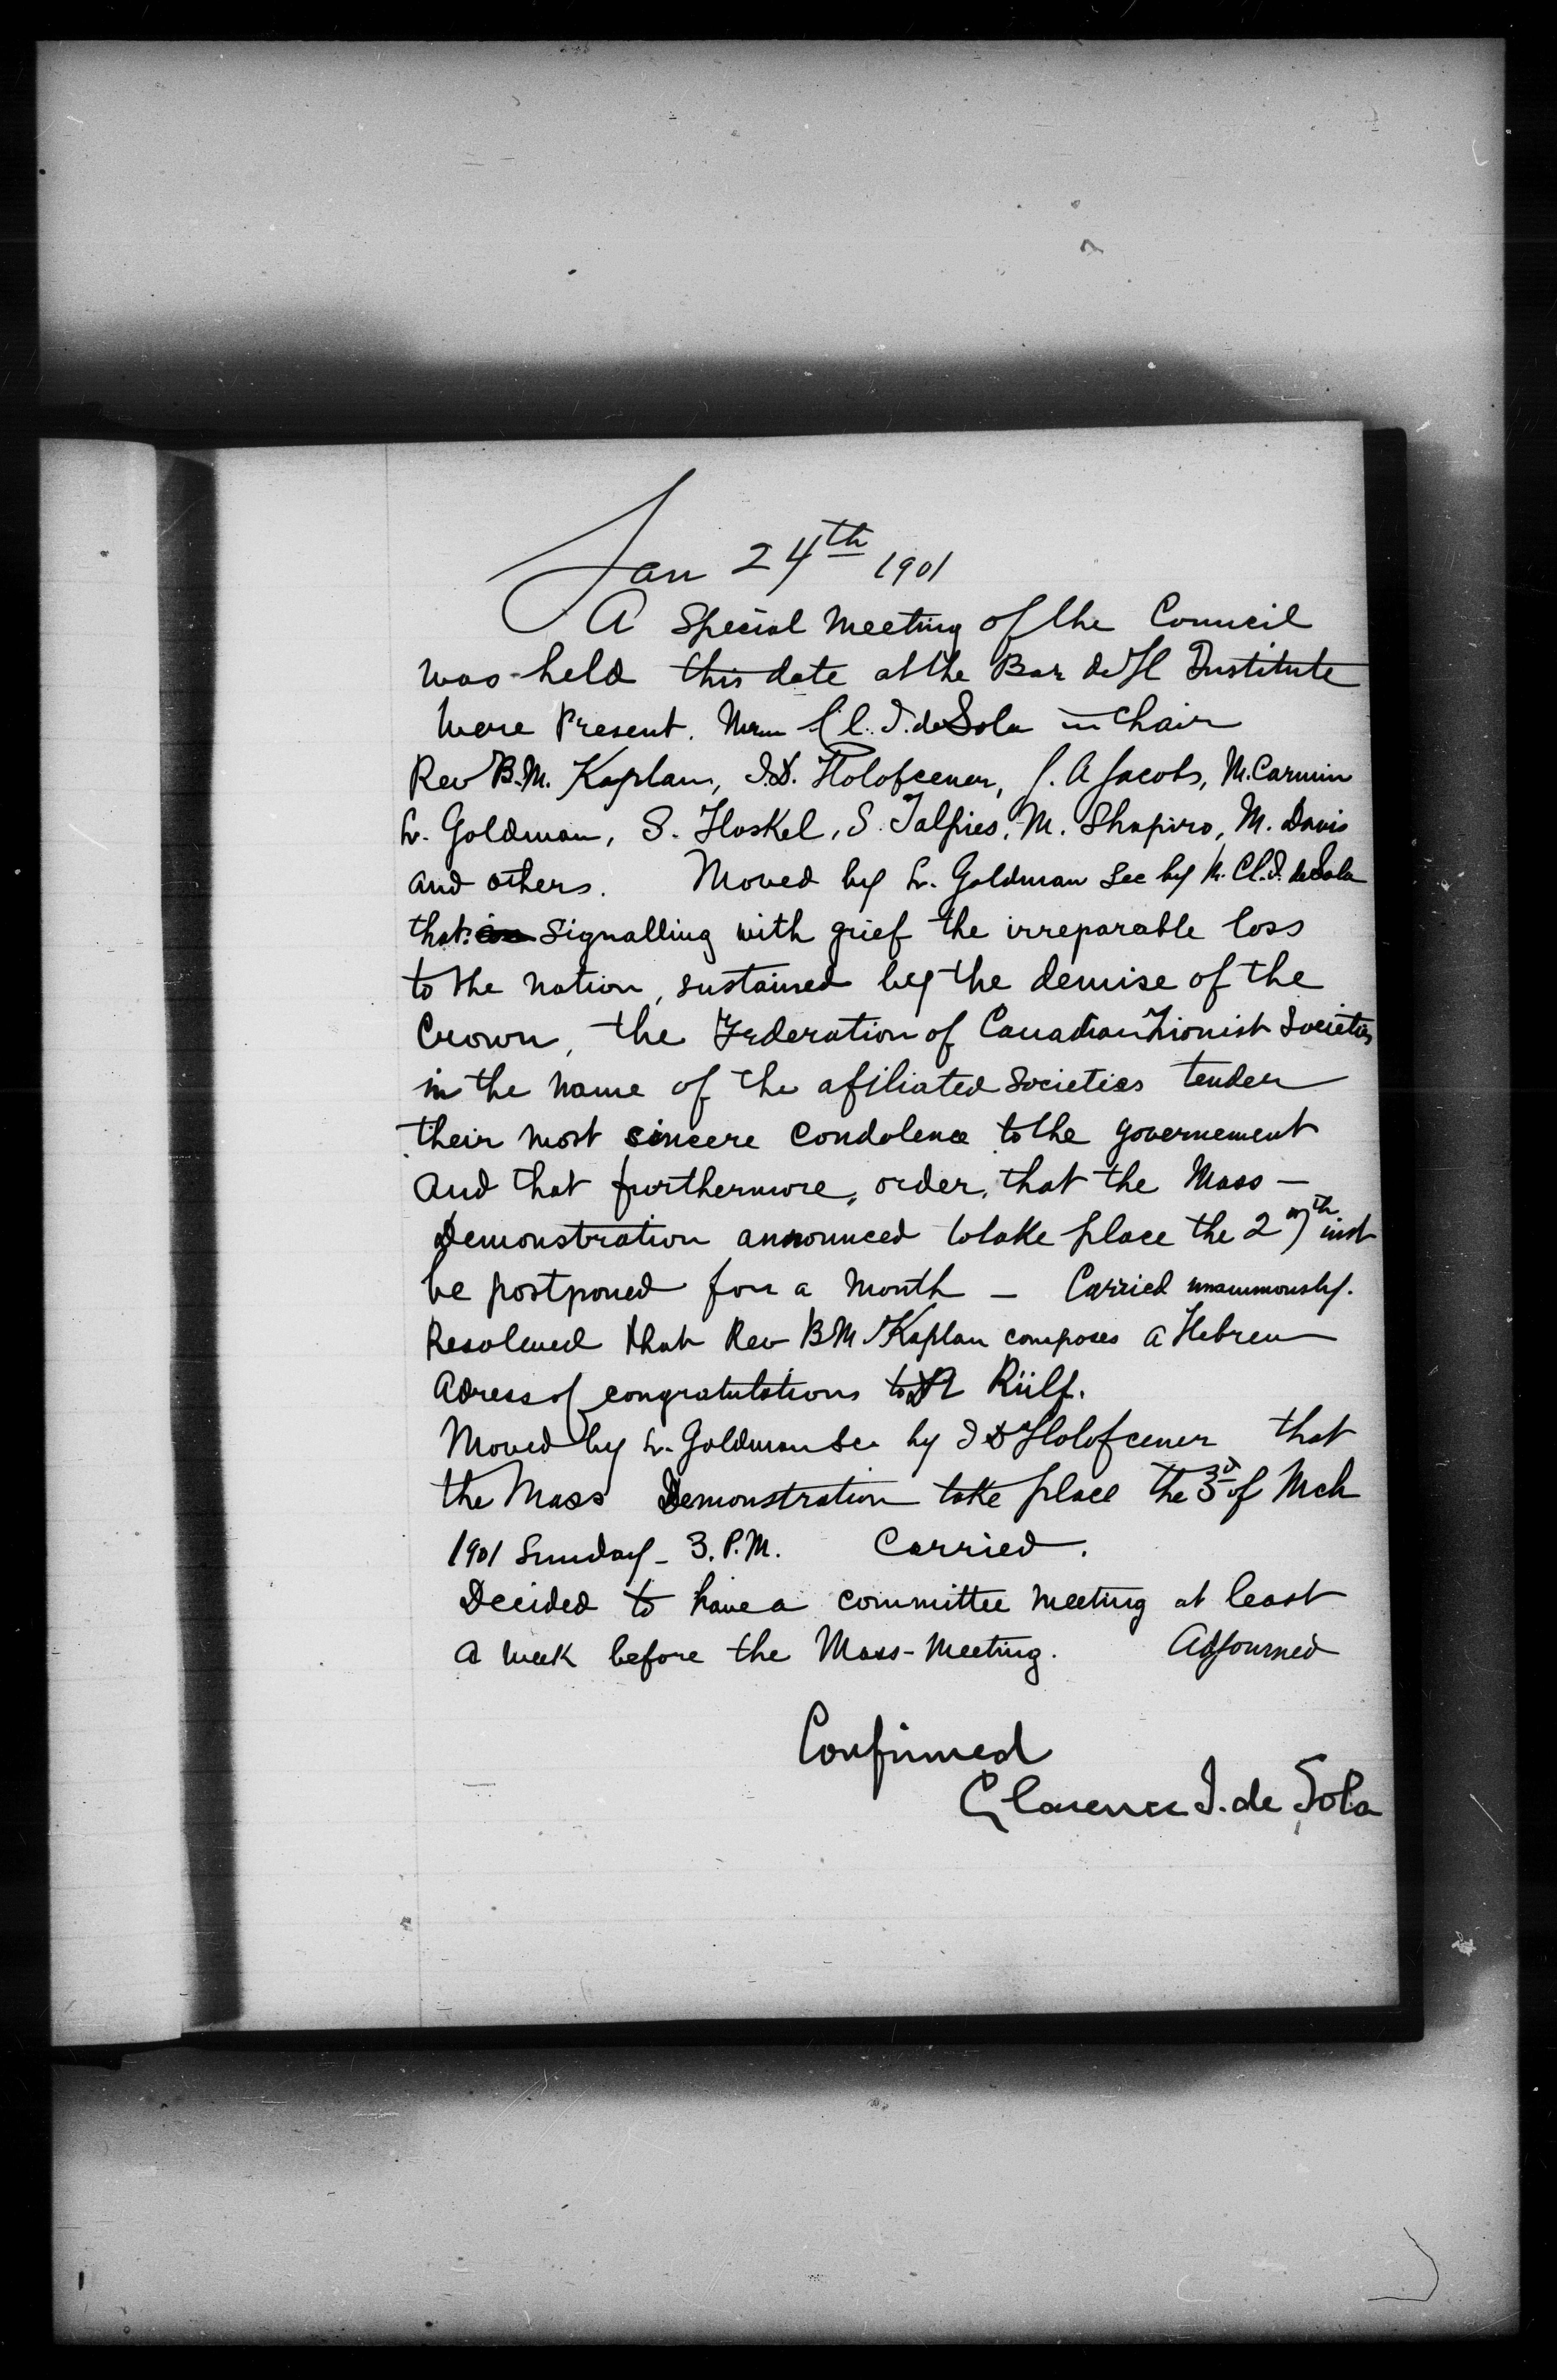 Jan 24th 1901
A Special Meeting of the Council
was held this date at the Bar de H Institute
were Present. Cl. I. de Sola in Chair
Rev B.M. Kaplan, I.D. Holofcener, J. A Jacobs, M. Carmin
L. Goldman, S. Haskel, S. Talpies, M. Shapiro, M. Davis
and others. Moved by L. Goldman Sec by Cl. I. de Sola
that Signalling with grief the irreparable loss
to the nation, sustained by the demise of the
Crown, the Federation of Canadian Zionist Societies
in the name of the afiliated Societies tender
their most sincere condolence to the governement
and that furthermore, order, that the Mass -
Demonstration announced to take place the 27th inst
be postponed for a month - Carried unanimously.
Resolved that Rev B M Kaplan composes a Hebrew
adress of congratulations to Dr Rülf.
Moved by L. Goldman Sec by I D Holofcener that
the Mass Demonstration take place the 3d of Mch
1901 Sunday - 3. P.M. Carried.
Decided to have a committee meeting at least
a week before the Mass-Meeting. Adjourned
Confirmed
Clarence I. de Sola